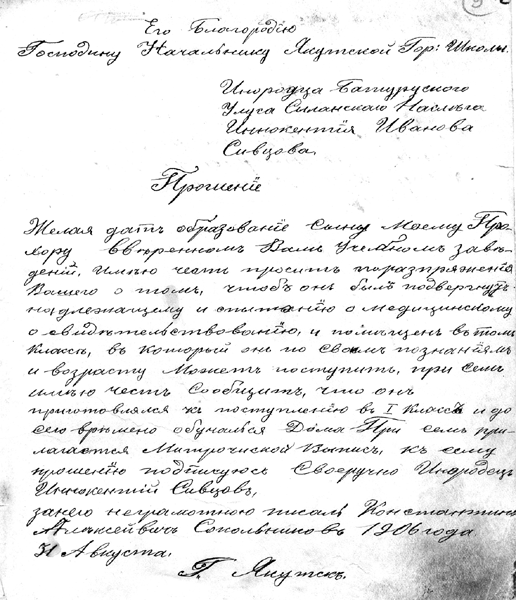 9
Его Благородію
Господину Начальнику Якутской Гор: Школы.
Инородца Батуруского
Улуса Сыланскаго Наслѣга
Иннокентія Иванова
Сивцова.
Прошеніе
Желая дать образованіе Сыну Моему Про-
хору ввѣренномъ Вамъ Учебномъ завѣ-
деніи, имѣю чести просить поразпряженію
Вашего о томъ, чтобъ онъ былъ подвергнутъ
надлежащему и спытанію о медицинскому
о свидѣтельствованію, и помѣщенъ въ томъ
Классъ, въ который онъ по своимъ познаніямъ
и возрасту Можетъ поступить, при семъ
имѣю честь Сообщить, что онъ
приготовлялся къ поступленію въ I Классъ и до
сего врѣмено обучался Дома При семъ при-
лагается Митрической Выпись, къ сему
прошенію подписуюсь Своеручно Инородецъ
Иннокентій Сивцовъ,
занего неграмотною писалъ Константинъ
Алексѣйвичъ Сокольниковъ 1906 года
31 Августа.
Г. Якутскъ.